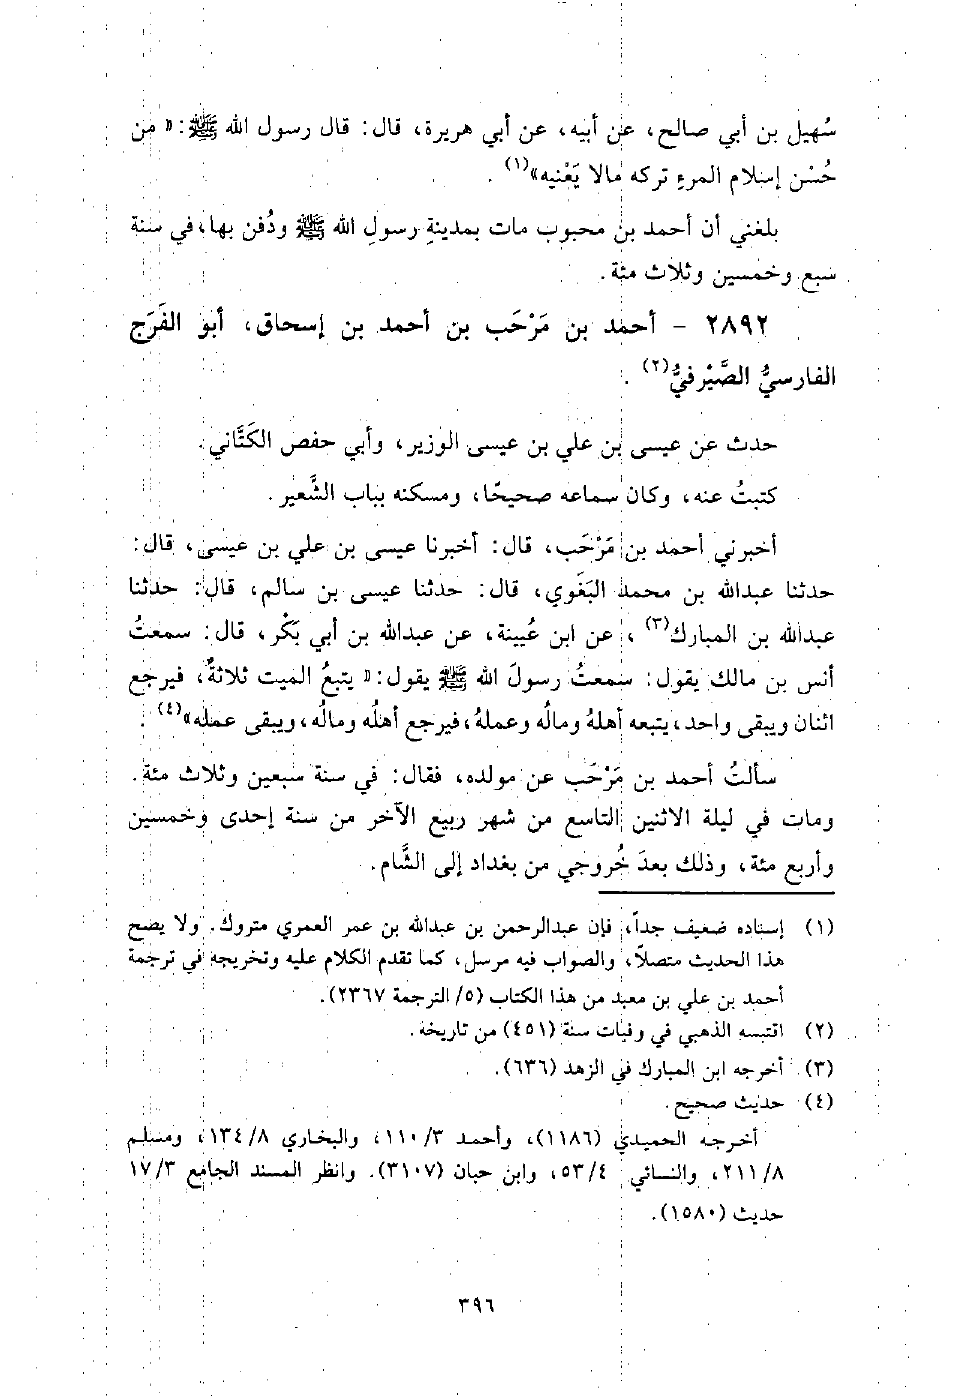 سُهيل بن أبي صالح، عن أبيه، عن أبي هريرة، قال: قال رسول الله ﷺ: «من
حُسْن إسلام المرءِ تركه مالا يَعْنيه»(١).
بلغني أن أحمد بن محبوب مات بمدينةِ رسولِ الله ﷺ ودُفن بها، في سنة
سبع وخمسين وثلاث مئة.
٢٨٩٢ - أحمد بن مَرْحَب بن أحمد بن إسحاق، أبو الفَرَج
الفارسيُّ الصَّيْرفيُّ(٢).
حدث عن عيسى بن علي بن عيسى الوزير، وأبي حفص الكَتَّاني.
كتبتُ عنه، وكان سماعه صحيحًا، ومسكنه بباب الشَّعير.
أخبرني أحمد بن مَرْحَب، قال: أخبرنا عيسى بن علي بن عيسى، قال:
حدثنا عبدالله بن محمد البَغَوي، قال: حدثنا عيسى بن سالم، قال: حدثنا
عبدالله بن المبارك(٣)، عن ابن عُيينة، عن عبدالله بن أبي بَكْر، قال: سمعتُ
أنس بن مالك يقول: سمعتُ رسولَ الله ﷺ يقول: «يتبعُ الميت ثلاثةٌ، فيرجع
اثنان ويبقى واحد، يتبعه أهلهُ ومالُه وعملهُ، فيرجع أهلُه ومالُه، ويبقى عمله»(٤).
سألتُ أحمد بن مَرْحَب عن مولده، فقال: في سنة سبعين وثلاث مئة.
ومات في ليلة الاثنين التاسع من شهر ربيع الآخر من سنة إحدى وخمسين
وأربع مئة، وذلك بعدَ خُروجي من بغداد إلى الشَّام.
(١) إسناده ضعيف جداً، فإن عبدالرحمن بن عبدالله بن عمر العمري متروك. ولا يصح
هذا الحديث متصلاً، والصواب فيه مرسل، كما تقدم الكلام عليه وتخريجه في ترجمة
أحمد بن علي بن معبد من هذا الكتاب (٥/ الترجمة ٢٣٦٧).
(٢) اقتبسه الذهبي في وفيات سنة (٤٥١) من تاريخه.
(٣) أخرجه ابن المبارك في الزهد (٦٣٦).
(٤) حديث صحيح.
أخرجه الحميدي (١١٨٦)، وأحمد ٣/ ١١٠، والبخاري ٨/ ١٣٤، ومسلم
٨/ ٢١١، والنسائي ٤/ ٥٣، وابن حبان (٣١٠٧). وانظر المسند الجامع ٣/ ١٧
حديث (١٥٨٠).
٣٩٦